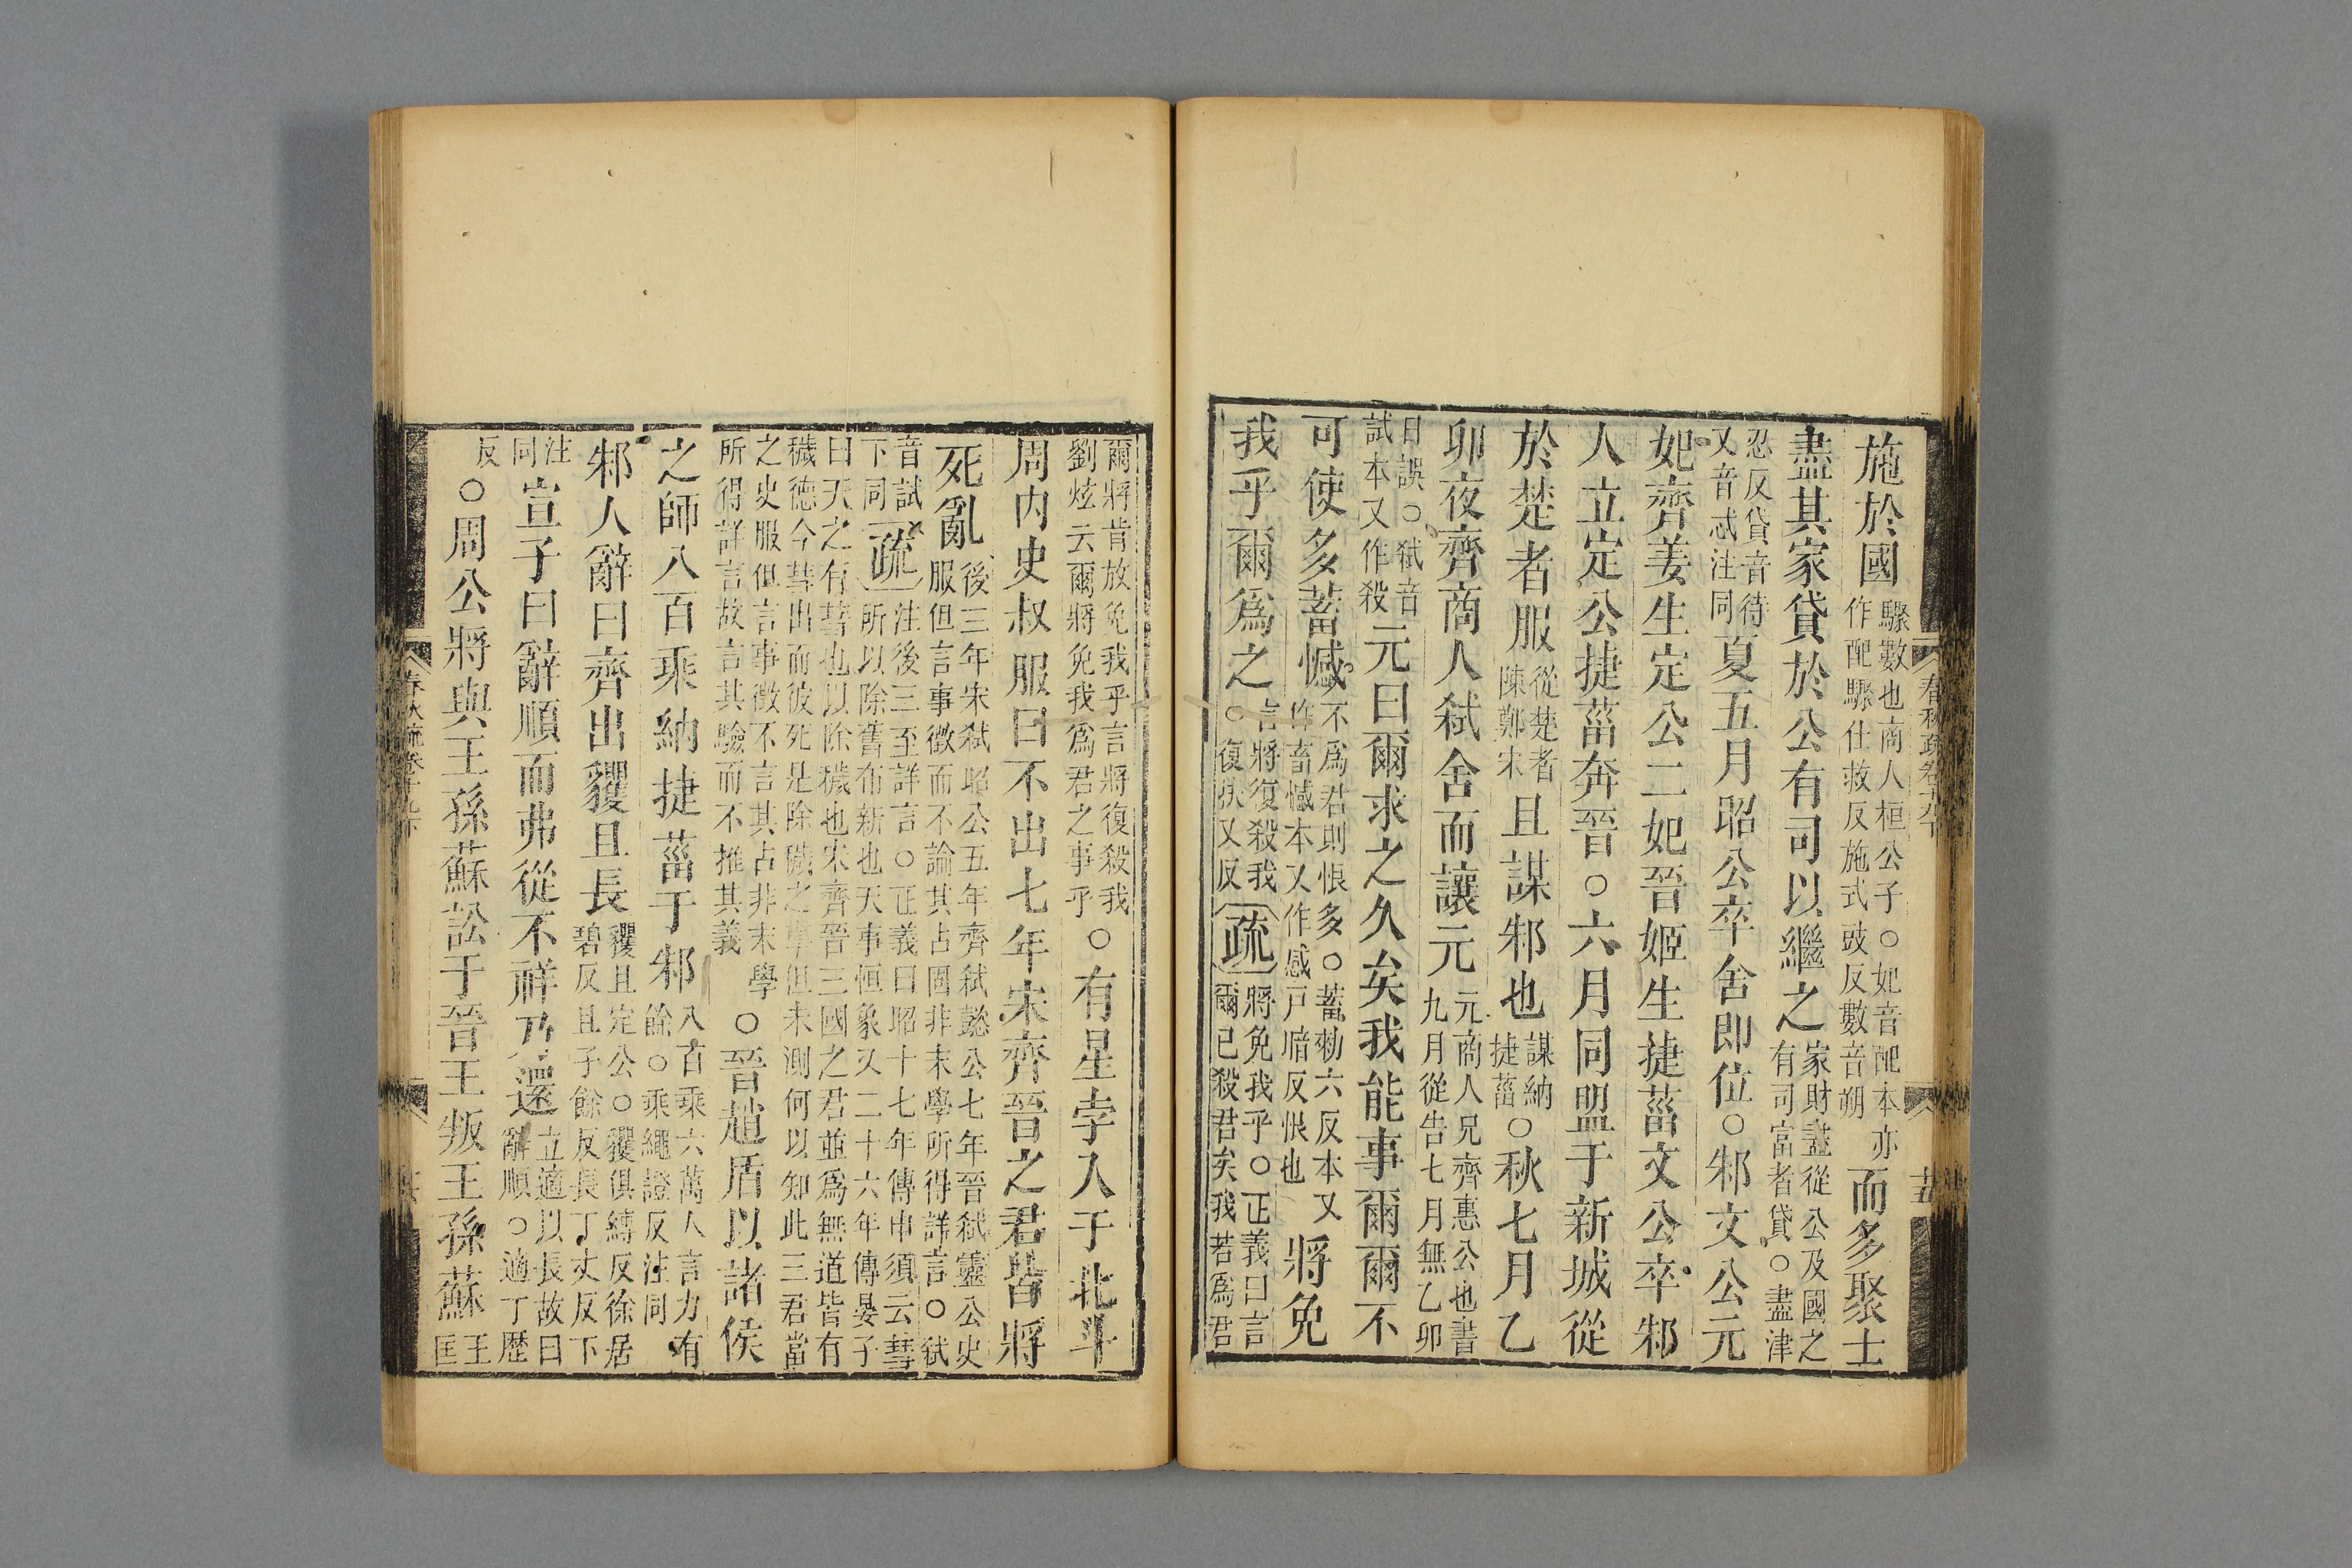 施於國驟數也商人桓公子○妃音配本亦作配驟仕救反施式豉反數音朔而多聚士
盡其家貸於公有司以繼之家財盡從公及國之有司富者貸○盡津
忍反貸音待又音忒注同夏五月昭公卒舍即位○邾文公元
妃齊姜生定公二妃晉姬生捷菑文公卒邾
人立定公捷菑奔晉○六月同盟于新城從
於楚者服從楚者陳鄭宋且謀邾也謀納捷菑○秋七月乙
卯夜齊商人弑舍而讓元元商人兄齊惠公也書九月從告七月無乙卯
日誤○弑音試本又作殺元曰爾求之久矣我能事爾爾不
可使多蓄憾不為君則恨多○蓄勑六反本又作畜憾本又作感戸暗反恨也將免
我乎爾為之言將復殺我○復扶又反疏將免我乎○正義曰言爾已殺君矣我若為君
爾將肯放免我乎言將復殺我劉炫云爾將免我為君之事乎○有星孛入于北斗
周内史叔服曰不出七年宋齊晉之君皆將
死亂後三年宋弑昭公五年齊弑懿公七年晉弑靈公史服但言事徵而不論其占固非末學所得詳言○弑
音試下同疏注後三至詳言○正義曰昭十七年傳申須云彗所以除舊布新也天事恒象又二十六年傳晏子
曰天之有彗也以除穢也宋齊晉三國之君並為無道皆有穢德今彗出而彼死是除穢之事但未測何以知此三君當
之史服但言事徵不言其占非末學所得詳言故言其驗而不推其義○晉趙盾以諸侯
之師八百乘納捷菑于邾八百乘六萬人言力有餘○乘繩證反注同
邾人辭曰齊出貜且長貜且定公○貜俱縛反徐居碧反且子餘反長丁丈反下
注同宣子曰辭順而弗從不祥乃還立適以長故曰辭順○適丁歷
反○周公將與王孫蘇訟于晉王叛王孫蘇王匡